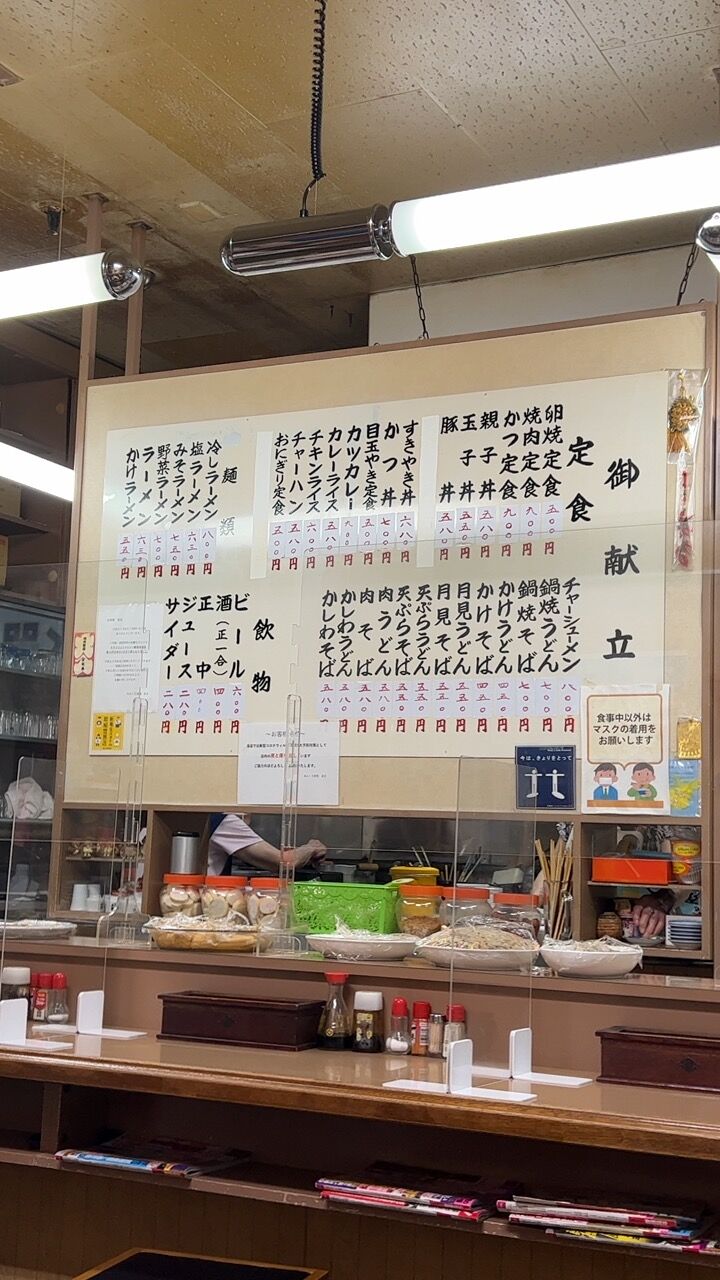 御献立
定食
卵焼定食 五〇〇円
焼肉定食 九〇〇円
かつ定食 九〇〇円
親子丼 五八〇円
玉子丼 五五〇円
豚丼 円
すきやき丼 六八〇円
かつ丼 七〇〇円
目玉やき定食 五〇〇円
カツカレー 九〇〇円
カレーライス 五八〇円
チキンライス 六〇〇円
チャーハン 五八〇円
おにぎり定食 五〇〇円
麺類
冷しラーメン 八〇〇円
塩ラーメン 六三〇円
みそラーメン 七五〇円
野菜ラーメン 七〇〇円
ラーメン 六三〇円
かけラーメン 五五〇円
チャーシューメン 八〇〇円
鍋焼うどん 七〇〇円
鍋焼そば 七〇〇円
かけうどん 四五〇円
かけそば 四五〇円
月見うどん 五五〇円
月見そば 五五〇円
天ぷらうどん 五五〇円
天ぷらそば 五五〇円
肉うどん 五八〇円
肉そば 五八〇円
かしわうどん 五八〇円
かしわそば 五八〇円
飲物
ビール 六〇〇円
酒(正一合) 円
正中 円
ジュース 二八〇円
サイダー 二八〇円
食事中以外は
マスクの着用を
お願いします
今は、きょりをとって